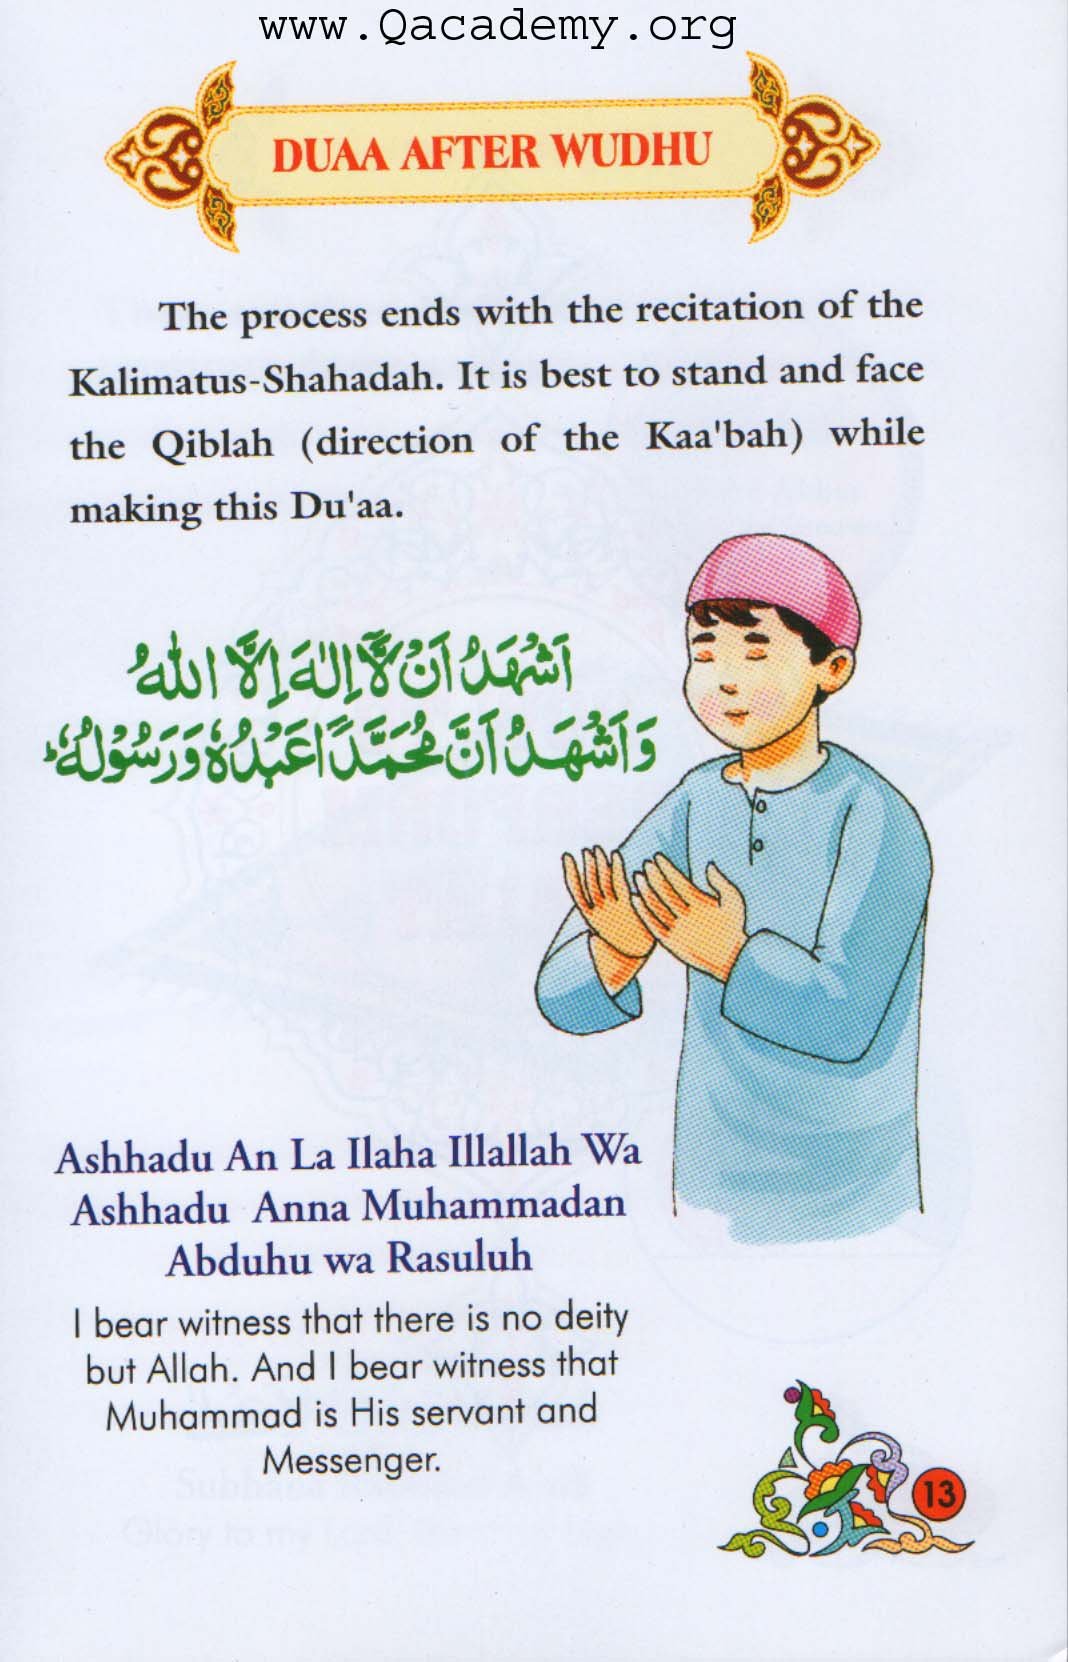 www.Qacademy.org
DUAA AFTER WUDHU
The process ends with the recitation of the
Kalimatus-Shahadah. It is best to stand and face
the Qiblah (direction of the Kaa'bah) while
making this Du'aa.
اَشْهَدُ اَنْ لَّآ اِلٰهَ اِلَّا اللّٰهُ
وَ اَشْهَدُ اَنَّ مُحَمَّدًا عَبْدُهٗ وَ رَسُوْلُهٗ
Ashhadu An La Ilaha Illallah Wa
Ashhadu Anna Muhammadan
Abduhu wa Rasuluh
I bear witness that there is no deity
but Allah. And I bear witness that
Muhammad is His servant and
Messenger.
13